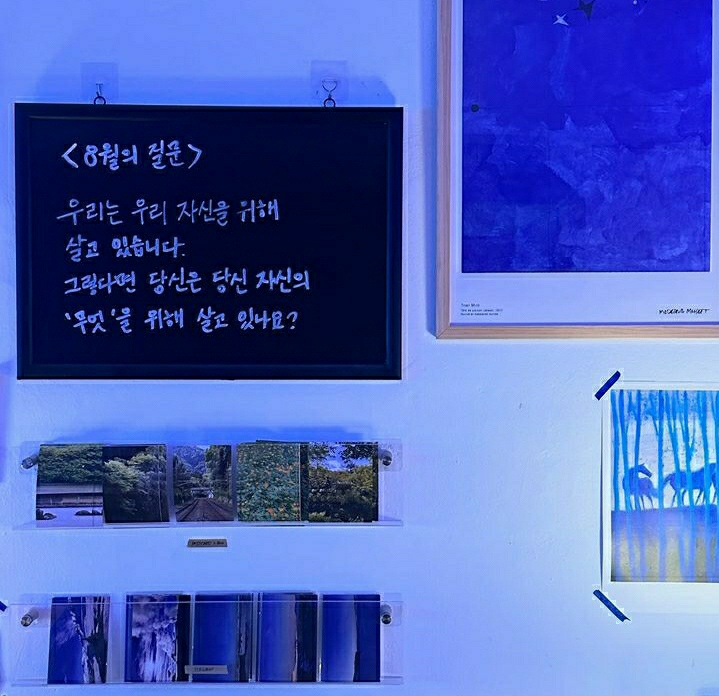 <8월의 질문>
우리는 우리 자신을 위해
살고 있습니다.
그렇다면 당신은 당신 자신의
'무엇'을 위해 살고 있나요?